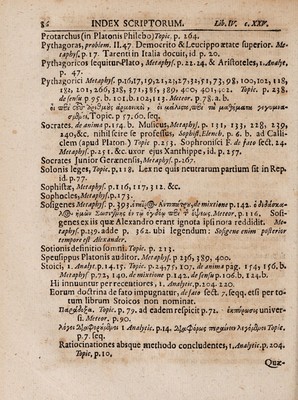 84 INDEX SCRIPTORUM. Lib. IV. c. XXV.
Protarchus (in Platonis Philebo) Topic. p. 164.
Pythagoras, problem. II. 47. Democrito & Leucippo ætate superior. Metaphys. p. 17. Tarenti in Italia docuit, id p. 20.
Pythagoricos sequitur Plato, Metaphys. p. 22. 24. & Aristoteles, 1. Analyt.
p. 47.
Pythagorici Metaphys. p. 16, 17, 19, 21, 23, 27, 31, 51, 73, 98, 100, 102, 118,
de sensu p. 95. b. 101. b. 102, 113. Meteor. p. 78. a. b.
Topic. p. 57. 60. seq.
Socrates. de anima p. 114. b. Musicus, Metaphys. p. 131, 133, 228, 239,
240, &c. nihil scire se professus, Sophist. Elench. p. 6. b. ad Calliclem
(apud Platon.) Topic p. 253. Sophronisci F. de fato sect. 24.
Metaphys. p. 251. &c. uxor ejus Xanthippe, id p. 257.
Socrates Junior Metaphys. p. 267.
Solonis leges, Topic. p. 118. Lex ne quis neutrarum partium sit in Repub.
id. p. 77.
Sophistæ, Metaphys. p. 116, 117, 312. &c.
Sophocles, Metaphys. p. 173.
Sosigenes Metaphys. p. 393. de mixtione p. 142.
Meteor. p. 116. Sosigenes
exiis quæ Alexandro erant ignota ipsi non reddidit. Metaphys.
p. 139. adde p. 362. ubi legendum: Sosigene enim posterior
tempore est Alexander.
Sotionis definitio somni. Topic. p. 213.
Speusippus Platonis auditor. Metaphys. p. 236, 389, 400.
Stoici, 1. Analyt. p. 14. 15. Topic. p. 24, 76, 107. de anima pag. 154. 156. b.
Metaphys. p. 72, 140, de mixtione p. 142, de sensu p. 106. b. 124. b.
Hi innuuntur per recentiores, 1. Analytic. p. 204. 220.
Eorum doctrina de fato impugnatur, de fato sect. 7. seqq. etsi per totum
librum Stoicos non nominat.
Topic. p. 79, ad eadem respicit p. 72. ἐκπύρωσις universi.
Meteor. p. 90.
1 Analytic. p. 14. Topic.
p. 7. seq.
Ratiocinationes absque methodo concludentes, 1. Analytic. p. 204.
Topic, p. 10.
Quæ-